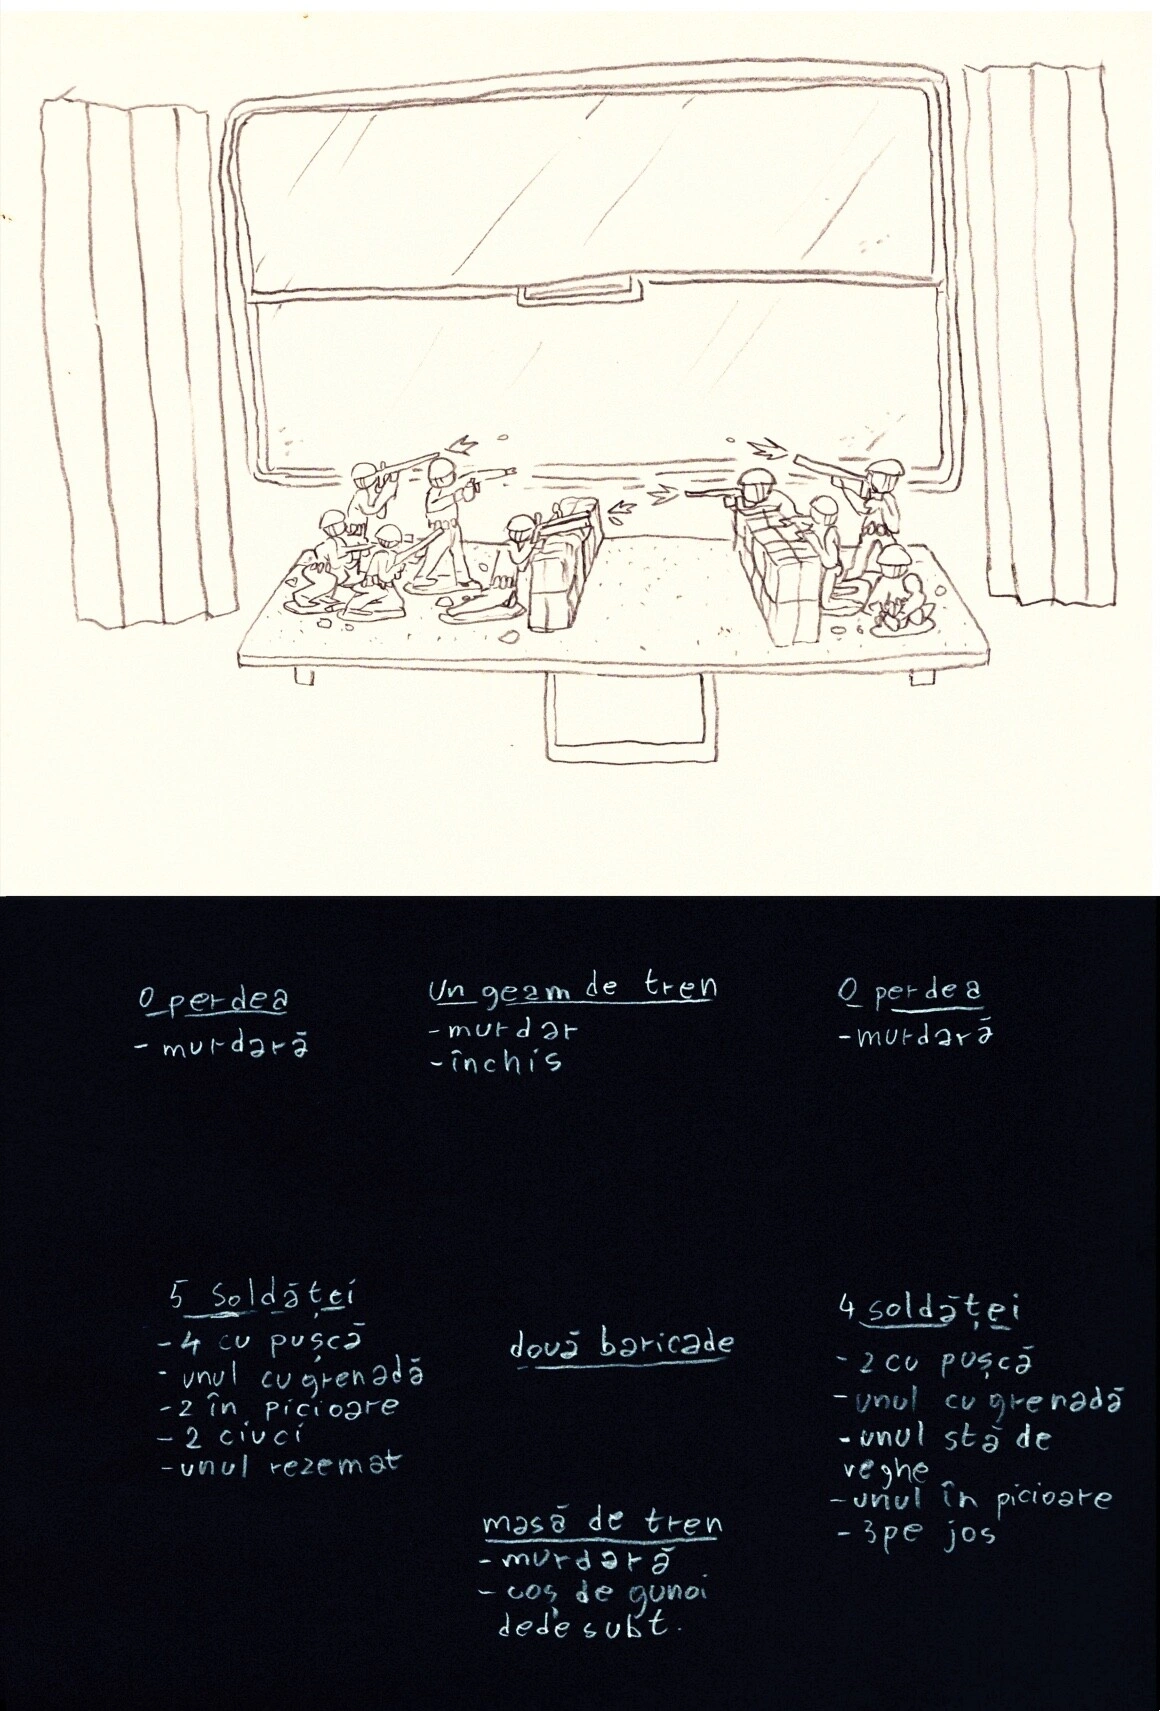 O perdea
- murdară
Un geam de tren
- murdar
- închis
O perdea
- murdară
5 soldăței
- 4 cu pușcă
- unul cu grenadă
- 2 în picioare
- 2 ciuci
- unul rezemat
două baricade
4 soldăței
- 2 cu pușcă
- unul cu grenadă
- unul stă de
veghe
- unul în picioare
- 3 pe jos
masă de tren
- murdară
- coș de gunoi
dedesubt.